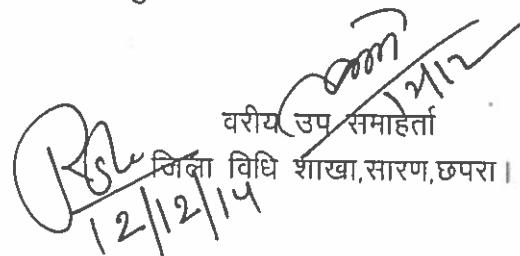 12/12
वरीय उप समाहर्ता
जिला विधि शाखा,सारण,छपरा।
12/12/14